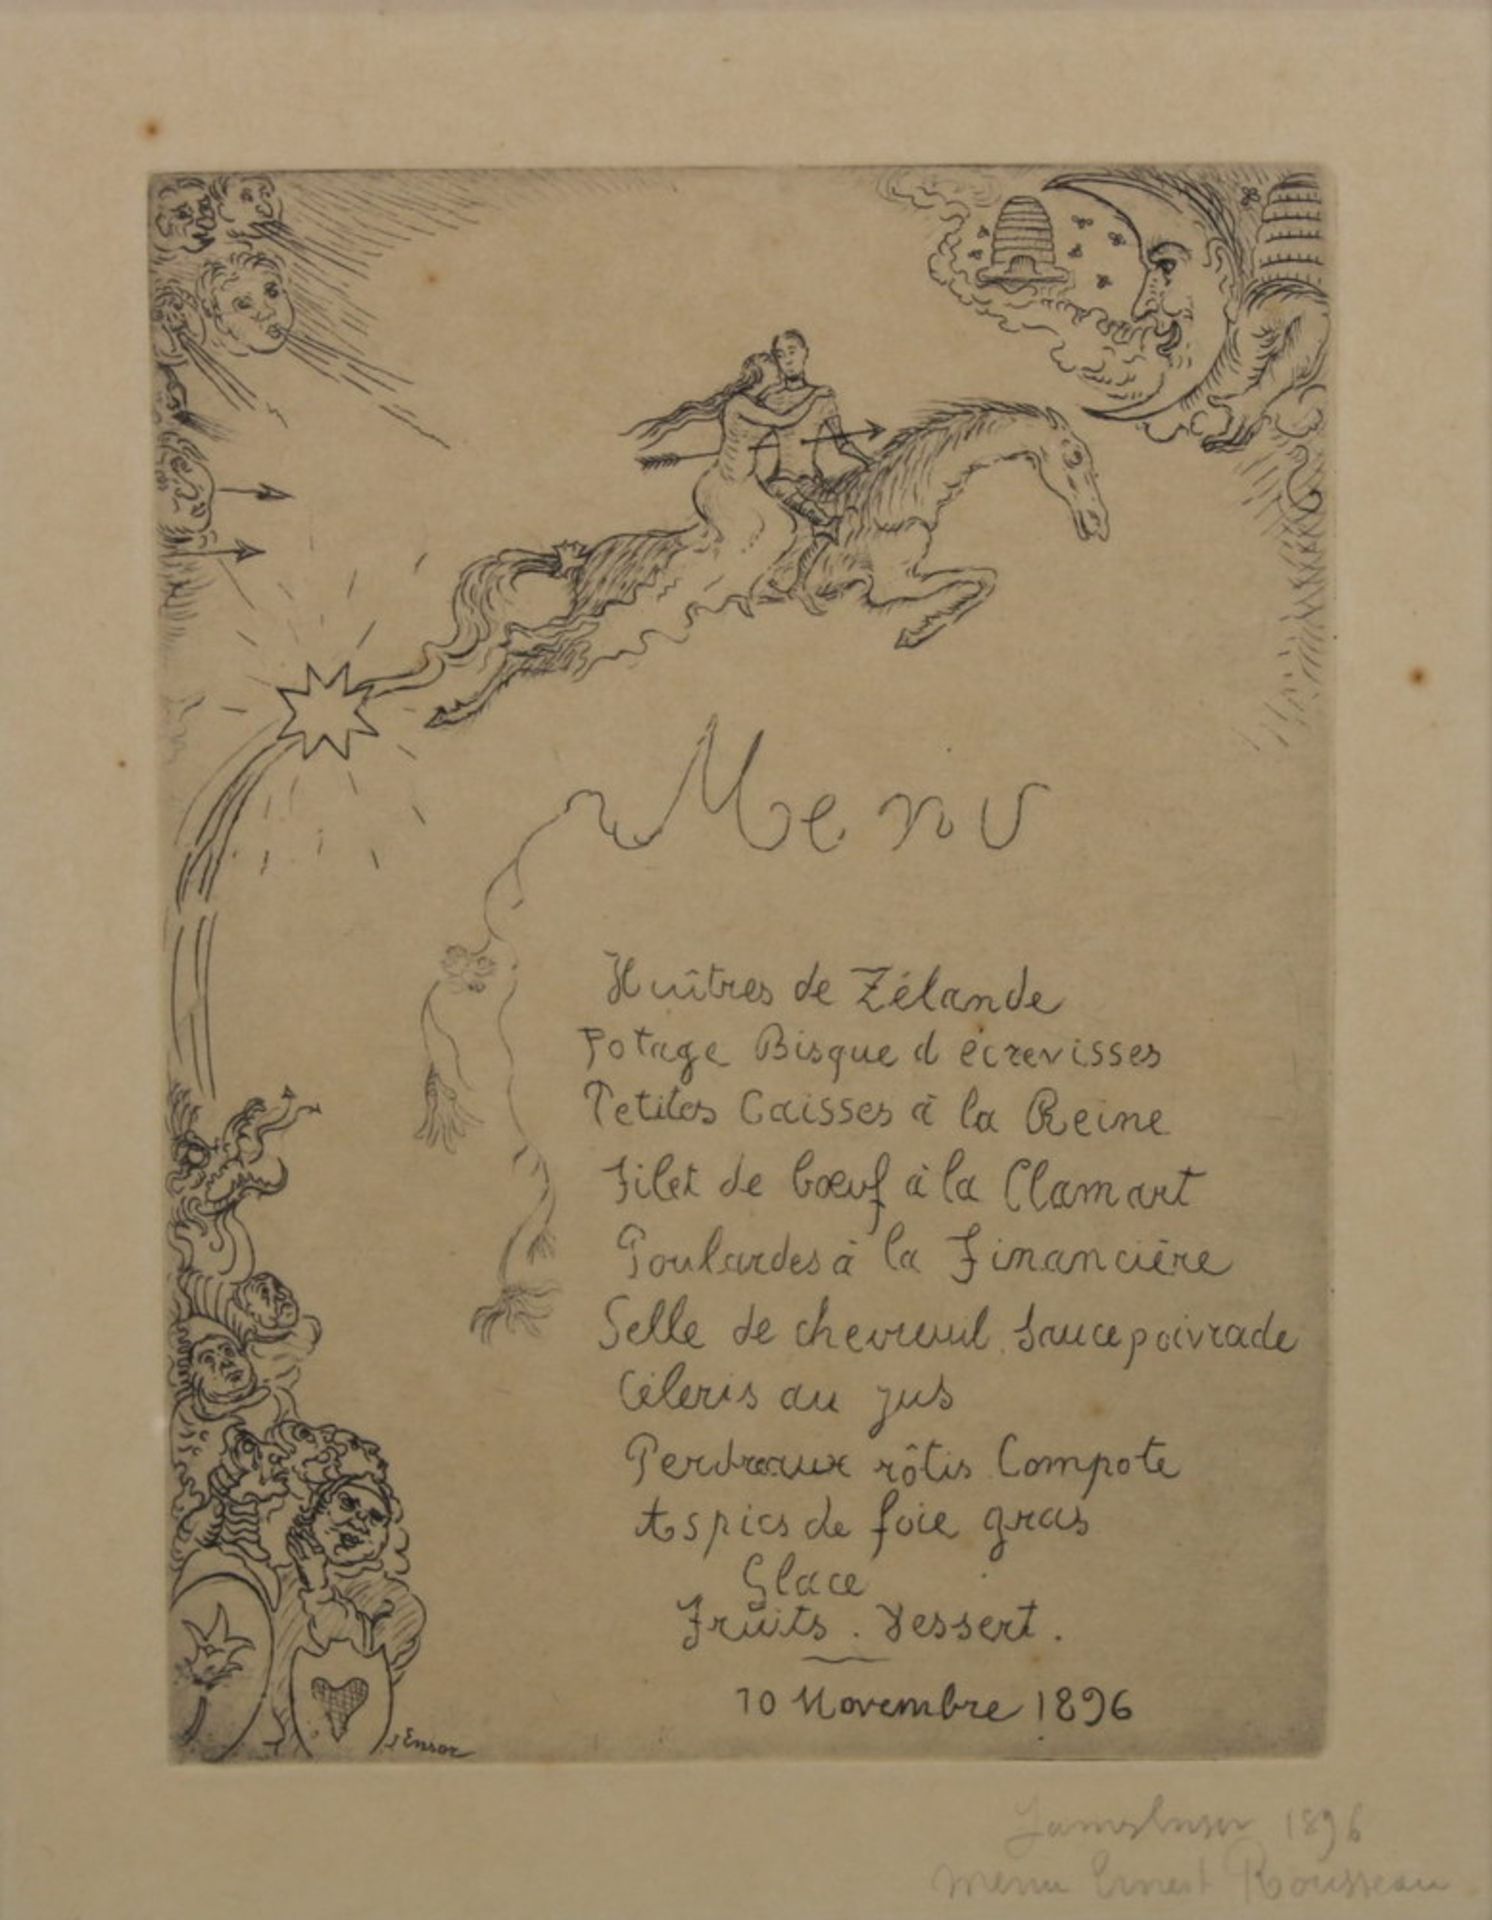 Menu
Huîtres de Zélande
Potage Bisque d écrevisses
Petites Caisses à la Reine
Filet de bœuf à la Clamart
Poulardes à la Financière
Selle de chevreuil sauce poivrade
Céleris au jus
Perdreaux rôtis Compote
Aspics de foie gras
Glace
Fruits . Dessert .
10 Novembre 1896
J Ensor
James Ensor 1896
menu Ernest Rousseau